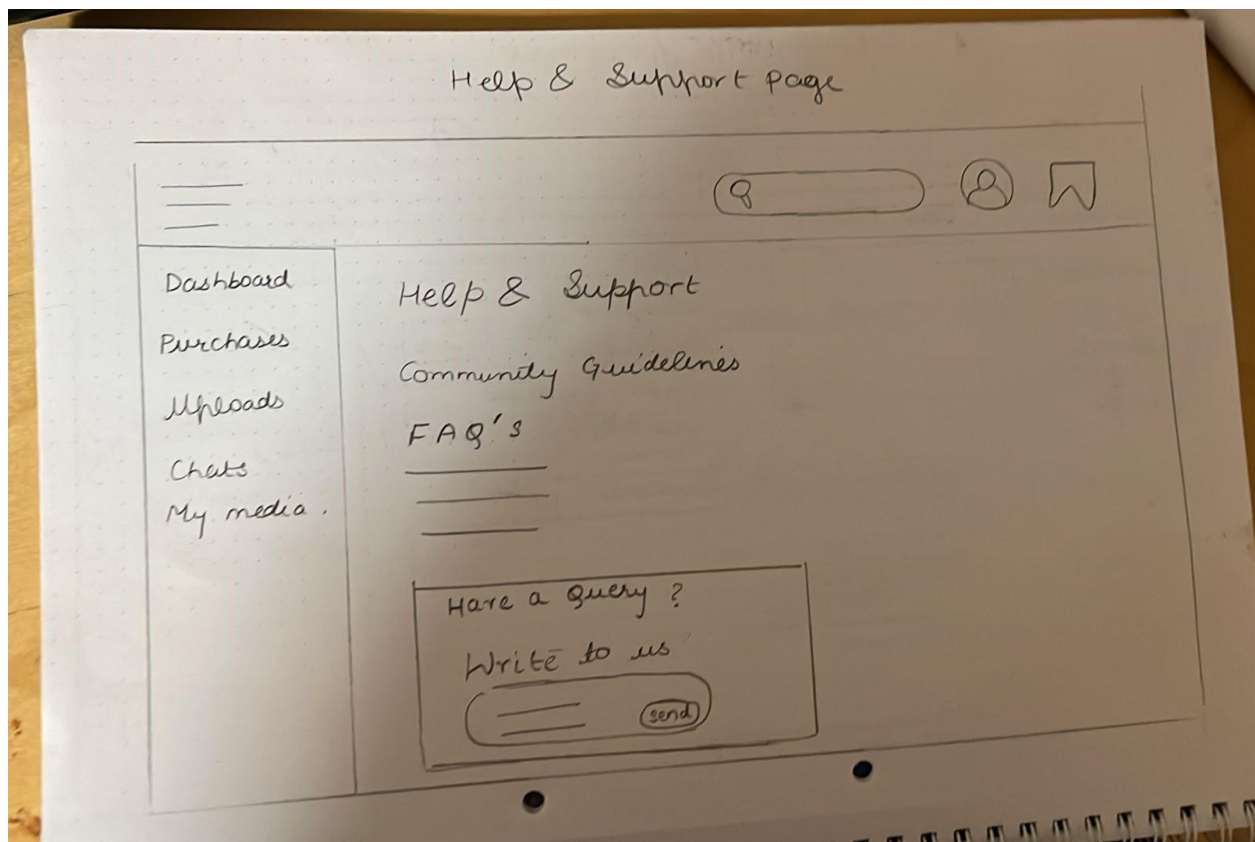 Help & Support page
Dashboard
Purchases
Uploads
Chats
My media.
Help & Support
Community Guidelines
FAQ's
Have a Query ?
Write to us
send